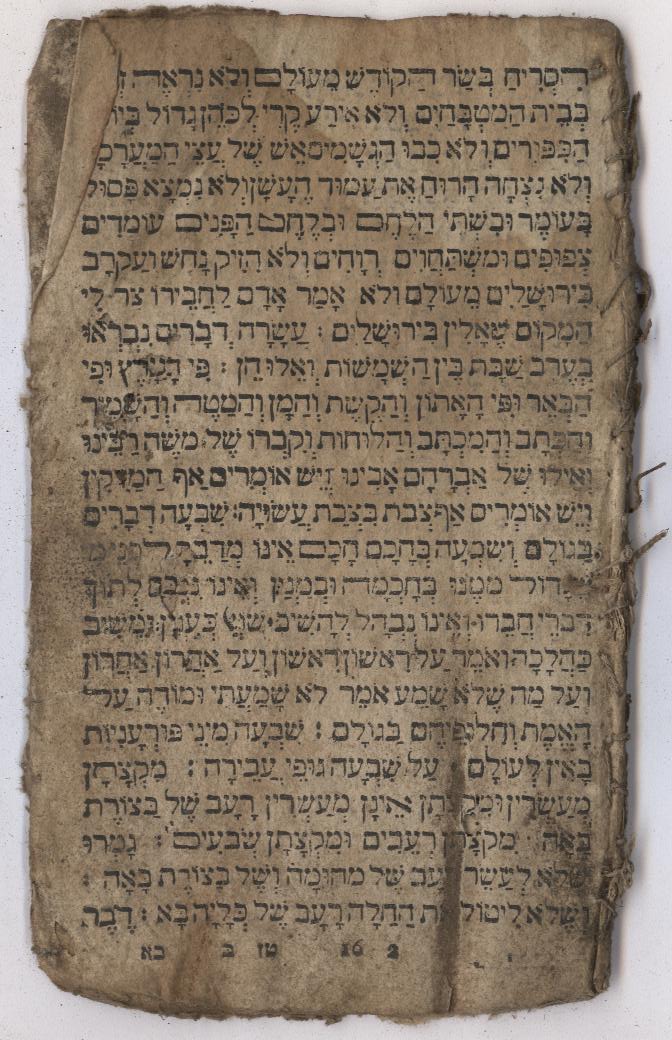 הִסְרִיחַ בְּשַׂר הַקּוֹדֶשׁ מֵעוֹלָם וְלֹא נִרְאָה
בְּבֵית הַמִּטְבָּחַיִם וְלֹא אִירַע קֶרִי לְכֹהֵן גָּדוֹל בְּיוֹם
הַכִּפּוּרִים וְלֹא כִבּוּ הַגְּשָׁמִים אֵשׁ שֶׁל עֲצֵי הַמַּעֲרָכָה
וְלֹא נִצְּחָה הָרוּחַ אֶת עַמּוּד הֶעָשָׁן וְלֹא נִמְצָא פְּסוּל
בָּעוֹמֶר וּבִשְׁתֵּי הַלֶּחֶם וּבְלֶחֶם הַפָּנִים עוֹמְדִים
צְפוּפִים וּמִשְׁתַּחֲוִים רְוָחִים וְלֹא הִזִּיק נָחָשׁ וְעַקְרָב
בִּירוּשָׁלַיִם מֵעוֹלָם וְלֹא אָמַר אָדָם לַחֲבֵירוֹ צַר לִי
הַמָּקוֹם שֶׁאָלִין בִּירוּשָׁלַיִם : עֲשָׂרָה דְבָרִים נִבְרְאוּ
בְּעֶרֶב שַׁבָּת בֵּין הַשְּׁמָשׁוֹת וְאֵלּוּ הֵן : פִּי הָאָרֶץ וּפִי
הַבְּאֵר וּפִי הָאָתוֹן וְהַקֶּשֶׁת וְהַמָּן וְהַמַּטֶּה וְהַשָּׁמִיר
וְהַכְּתָב וְהַמִּכְתָּב וְהַלּוּחוֹת וְקִבְרוֹ שֶׁל מֹשֶׁה
וְאֵילוֹ שֶׁל אַבְרָהָם אָבִינוּ וְיֵשׁ אוֹמְרִים אַף הַמַּזִּיקִין
וְיֵשׁ אוֹמְרִים אַף צְבַת בִּצְבַת עֲשׂוּיָה : שִׁבְעָה דְבָרִים
בְּגוֹלָם וְשִׁבְעָה בְּחָכָם חָכָם אֵינוֹ מְדַבֵּר לִפְנֵי מִי
שֶׁגָּדוֹל מִמֶּנּוּ בְּחָכְמָה וּבְמִנְיָן וְאֵינוֹ נִכְנָס לְתוֹךְ
דִּבְרֵי חֲבֵרוֹ וְאֵינוֹ נִבְהָל לְהָשִׁיב כְּעִנְיָן וּמֵשִׁיב
כַּהֲלָכָה וְאוֹמֵר עַל רִאשׁוֹן רִאשׁוֹן וְעַל אַחֲרוֹן אַחֲרוֹן
וְעַל מַה שֶּׁלֹּא שָׁמַע אֹמֵר לֹא שָׁמַעְתִּי וּמוֹדֶה עַל
הָאֱמֶת וְחִלּוּפֵיהֶם בְּגוֹלָם : שִׁבְעָה מִינֵי פוּרְעָנִיּוֹת
בָּאִין לָעוֹלָם עַל שִׁבְעָה גוּפֵי עֲבֵירָה : מִקְצָתָן
מְעַשְּׂרִין וּמִקְצָתָן אֵינָן מְעַשְּׂרִין רָעָב שֶׁל בַּצּוֹרֶת
בָּאָה מִקְצָתָן רְעֵבִים וּמִקְצָתָן שְׂבֵעִים : גָּמְרוּ
שֶׁלֹּא לְעַשֵּׂר רָעָב שֶׁל מְהוּמָה וְשֶׁל בַּצּוֹרֶת בָּאָה :
וְשֶׁלֹּא לִיטוֹל אֶת הַחַלָּה רָעָב שֶׁל כְּלָיָה בָּא : דֶּבֶר
2 16 טז ב בא